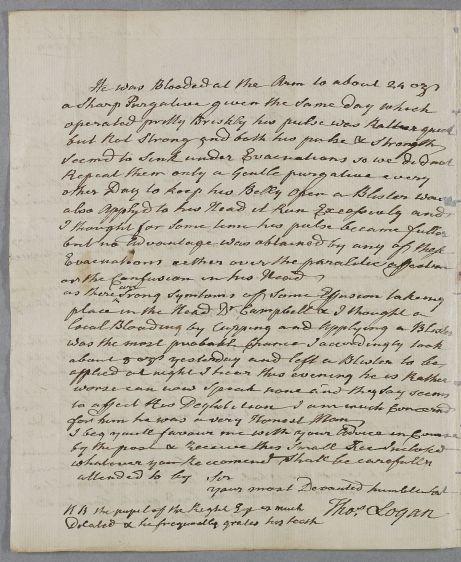 He was Blooded at the Arm to about 24 oz
a Sharp Purgative given the same day which
operated pretty Briskly his pulse was Rather quick
but Not Strong and both his pulse & Strength
Seemd to Sink under Evacuations so we did not
Repeat them only a Gentle purgative every
other Day to keep his Belly open a Blister was
also Applyd to his Head it Run Excessively and
I thought for some time his pulse became fuller
but no Advantage was obtained by any of these
Evacuations either over the paralitic affection
or the Confusion in his Head
as there Came Strong Symtoms of Some Effusion taking
place in the Head Dr Campbell & I thought a
Local Blooding by Cupping and Applying a Blister
was the most probable Chance I accordingly took
about 8 oz yesterday and left a Blister to be
applied at night I hear this evening he is Rather
worse can now Speak none and they say seems
to affect His Deglutition I am much Concernd
for him he was a very Honest Man
I beg youll favour me with your Advice in Course
by the post & Receive this Small Fee Inclosed
whatever you Reccomend Shall be carefully
attended to by Sir
your most Devouted humble Sert
Thos. Logan
NB the pupil of the Right Eye is much
Dilated & he frequently grates his teeth